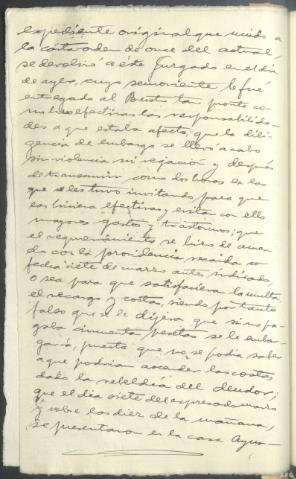 expediente original que unido a
la carta orden de once del actual,
se devolvió a este Juzgado en el día
de ayer, cuyo semoviente le fué
entregado al Brito tan pronto co-
mo hizo efectivas las responsabilida-
des a que estaba afecto; que la dili-
gencia de embargo se llevó a cabo
sin violencia ni vejación y después
de transcurrir como dos horas en las
que se les tuvo invitando para que
las hiciera efectivas y evitar con ello
mayores gastos y trastornos; que
el requerimiento se hizo de acuer-
do con la providencia recaída con
fecha siete de marzo antes indicado,
o sea para que satisfaciera la multa,
el recargo y costas, siendo por tanto
falso que se le dijera que si no pa-
gaba cincuenta pesetas se le embar-
garía, puesto que no se podía saber
a que podrían ascender las costas
dada la rebeldía del deudor;
que el día siete del expresado marzo
y sobre las diez de la mañana,
se presentaron en la casa Ayun-